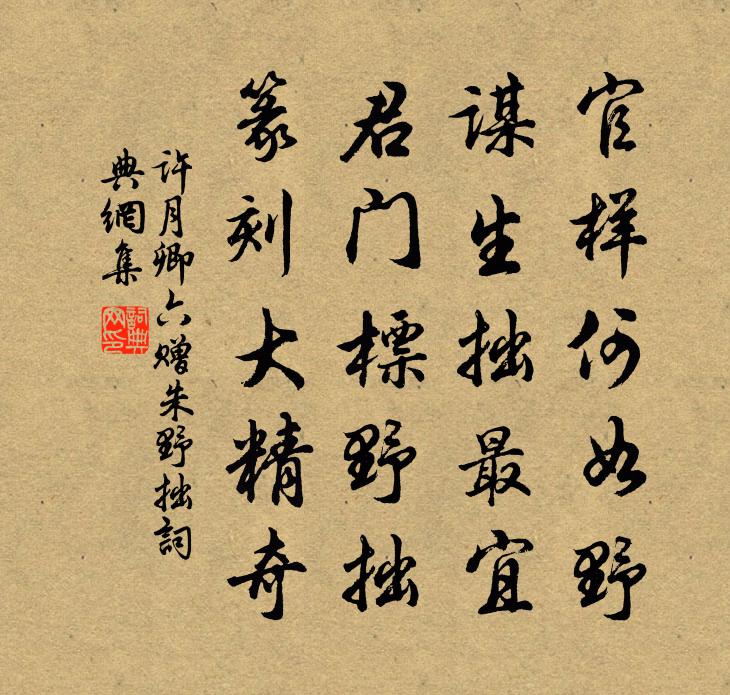 官样何如野
谋生拙最宜
君门標野拙
篆刻大精奇
许月卿六赠朱野拙詞
典網集
詞典网印